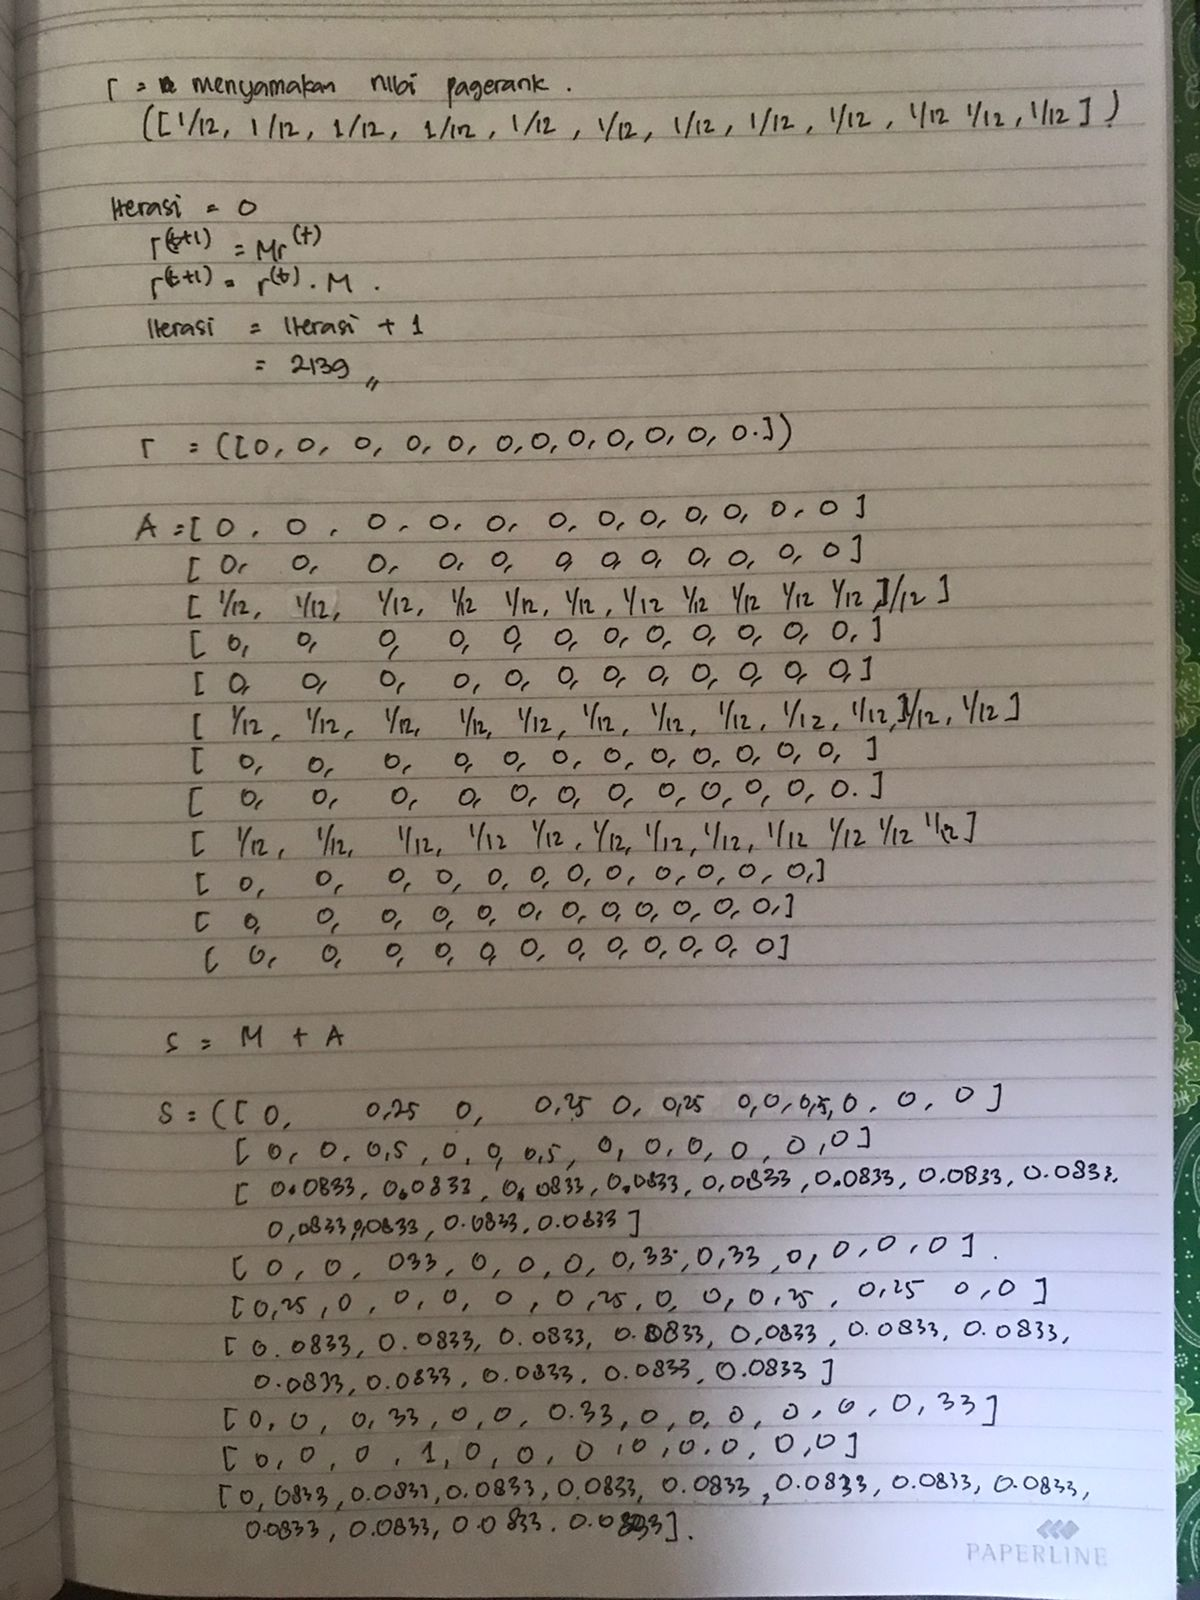 r = menyamakan nilai pagerank .
([1/12, 1/12, 1/12, 1/12, 1/12, 1/12, 1/12, 1/12, 1/12, 1/12 1/12, 1/12])
Iterasi = 0
r(t+1) = Mr(t)
r(t+1) = r(t) . M .
Iterasi = Iterasi + 1
= 2139 ,,
r = ([0, 0, 0, 0, 0, 0, 0, 0, 0, 0, 0, 0.])
A = [ 0, 0, 0, 0, 0, 0, 0, 0, 0, 0, 0, 0 ]
[ 0, 0, 0, 0, 0, 0, 0, 0, 0, 0, 0, 0 ]
[ 1/12, 1/12, 1/12, 1/12 1/12, 1/12, 1/12 1/12 1/12 1/12 1/12, 1/12 ]
[ 0, 0, 0, 0, 0, 0, 0, 0, 0, 0, 0, 0, ]
[ 0, 0, 0, 0, 0, 0, 0, 0, 0, 0, 0, 0, ]
[ 1/12, 1/12, 1/12, 1/12, 1/12, 1/12, 1/12, 1/12, 1/12, 1/12, 1/12, 1/12 ]
[ 0, 0, 0, 0, 0, 0, 0, 0, 0, 0, 0, 0, ]
[ 0, 0, 0, 0, 0, 0, 0, 0, 0, 0, 0, 0. ]
[ 1/12, 1/12, 1/12, 1/12 1/12, 1/12, 1/12, 1/12, 1/12 1/12 1/12 1/12 ]
[ 0, 0, 0, 0, 0, 0, 0, 0, 0, 0, 0, 0, ]
[ 0, 0, 0, 0, 0, 0, 0, 0, 0, 0, 0, 0, ]
[ 0, 0, 0, 0, 0, 0, 0, 0, 0, 0, 0, 0 ]
S = M + A
S = ([ 0, 0,25 0, 0,25 0, 0,25 0,0,0,5,0, 0, 0 ]
[ 0, 0, 0,5, 0, 0, 0,5, 0, 0, 0, 0, 0, 0 ]
[ 0.0833, 0.0833, 0.0833, 0.0833, 0,0833, 0.0833, 0.0833, 0.0833,
0,0833,0,0833, 0.0833, 0.0833 ]
[ 0, 0, 033, 0, 0, 0, 0,33, 0,33, 0, 0, 0, 0 ] .
[ 0,25, 0, 0, 0, 0, 0,25, 0, 0, 0,25, 0,25 0,0 ]
[ 0.0833, 0.0833, 0.0833, 0.0833, 0,0833, 0.0833, 0.0833,
0.0833, 0.0833, 0.0833, 0.0833, 0.0833 ]
[ 0, 0, 0,33, 0, 0, 0.33, 0, 0, 0, 0, 0, 0,33 ]
[ 0, 0, 0, 1, 0, 0, 0, 0, 0, 0, 0, 0 ]
[ 0,0833, 0.0833, 0.0833, 0.0833, 0.0833, 0.0833, 0.0833, 0.0833,
0.0833, 0.0833, 0.0833, 0.0833 ].
PAPERLINE